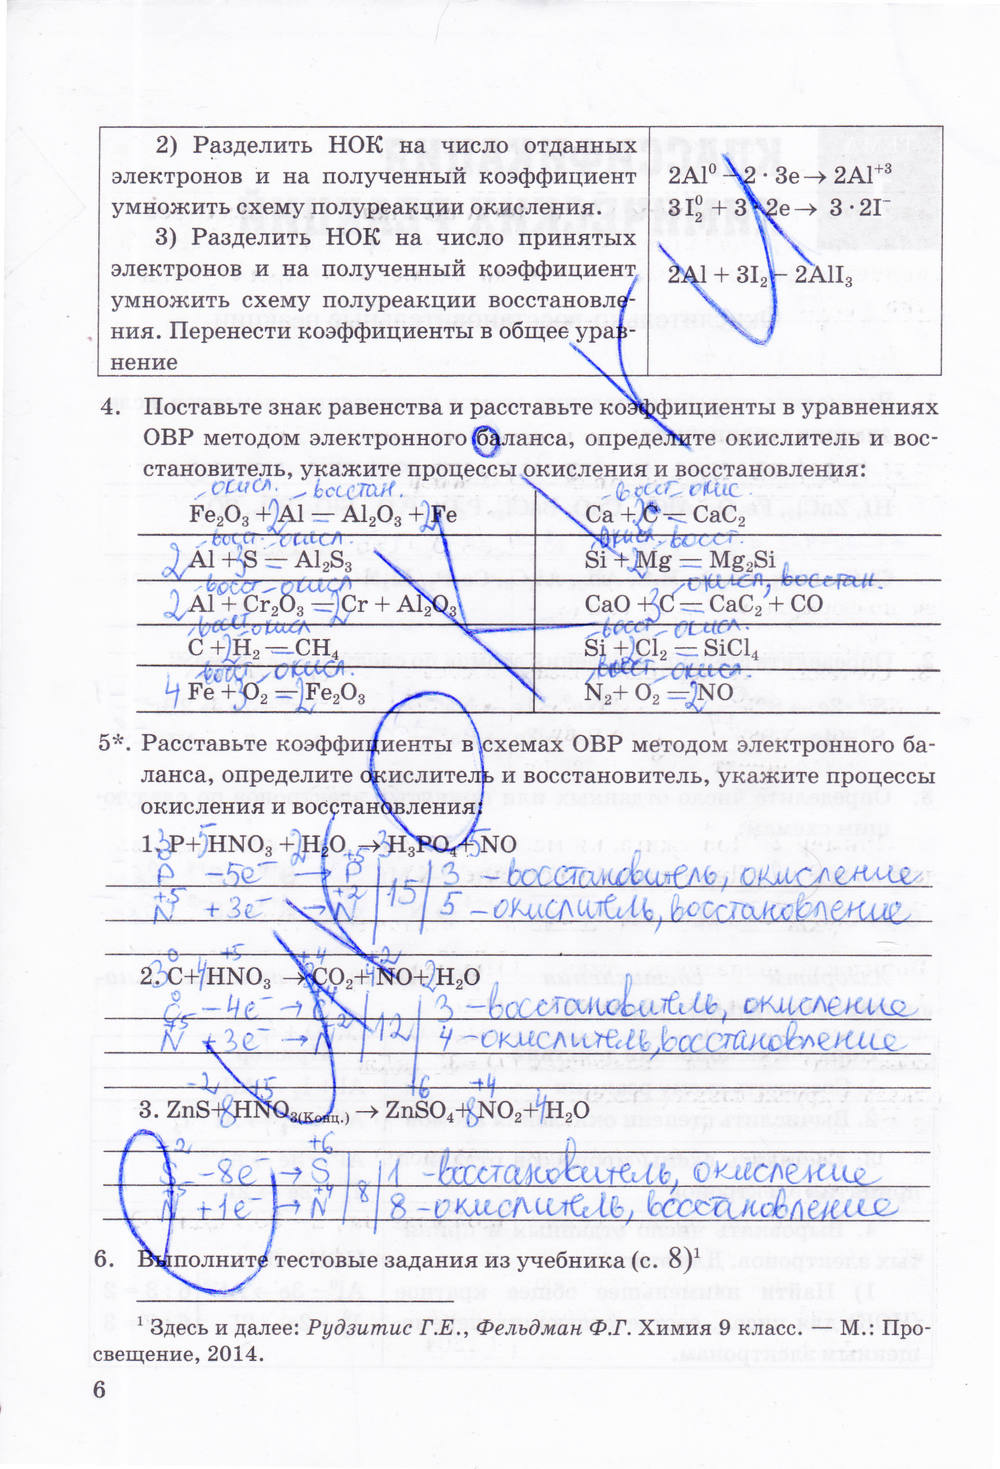 2) Разделить НОК на число отданных
электронов и на полученный коэффициент
умножить схему полуреакции окисления.
3) Разделить НОК на число принятых
электронов и на полученный коэффициент
умножить схему полуреакции восстановле-
ния. Перенести коэффициенты в общее урав-
нение
2Al⁰ – 2 · 3e → 2Al⁺³
3I₂⁰ + 3 · 2e → 3·2I⁻
2Al + 3I₂ – 2AlI₃
4. Поставьте знак равенства и расставьте коэффициенты в уравнениях
ОВР методом электронного баланса, определите окислитель и вос-
становитель, укажите процессы окисления и восстановления:
-окисл. -восстан.
Fe₂O₃ + 2Al = Al₂O₃ + 2Fe
-восст -окисл.
2Al + 3S = Al₂S₃
-восст -окисл
2Al + Cr₂O₃ = 2Cr + Al₂O₃
-восст -окисл
C + 2H₂ = CH₄
-восст. -окисл.
4Fe + 3O₂ = 2Fe₂O₃
-восст -окис
Ca + 2C = CaC₂
окисл. -восст.
Si + 2Mg = Mg₂Si
-окисл, восстан.
CaO + 3C = CaC₂ + CO
-восст -окисл.
Si + 2Cl₂ = SiCl₄
восст. -окисл.
N₂ + O₂ = 2NO
5*. Расставьте коэффициенты в схемах ОВР методом электронного ба-
ланса, определите окислитель и восстановитель, укажите процессы
окисления и восстановления:
1. 3P + 5HNO₃ + 2H₂O → 3H₃PO₄ + 5NO
P⁰ -5e⁻ → P⁺⁵ | 15 | 3 - восстановитель, окисление
N⁺⁵ +3e⁻ → N⁺² | 5 - окислитель, восстановление
0 +5 +4 +2
2. 3C + 4HNO₃ → 3CO₂ + 4NO + 2H₂O
C⁰ -4e⁻ → C⁺⁴ | 12 | 3 - восстановитель, окисление
N⁺⁵ +3e⁻ → N⁺² | 4 - окислитель, восстановление
-2 +5 +6 +4
3. ZnS + 8HNO₃(Конц.) → ZnSO₄ + 8NO₂ + 4H₂O
S⁻² -8e⁻ → S⁺⁶ | 8 | 1 - восстановитель, окисление
N⁺⁵ +1e⁻ → N⁺⁴ | 8 - окислитель, восстановление
6. Выполните тестовые задания из учебника (с. 8)¹
¹ Здесь и далее: Рудзитис Г.Е., Фельдман Ф.Г. Химия 9 класс. — М.: Про-
свещение, 2014.
6